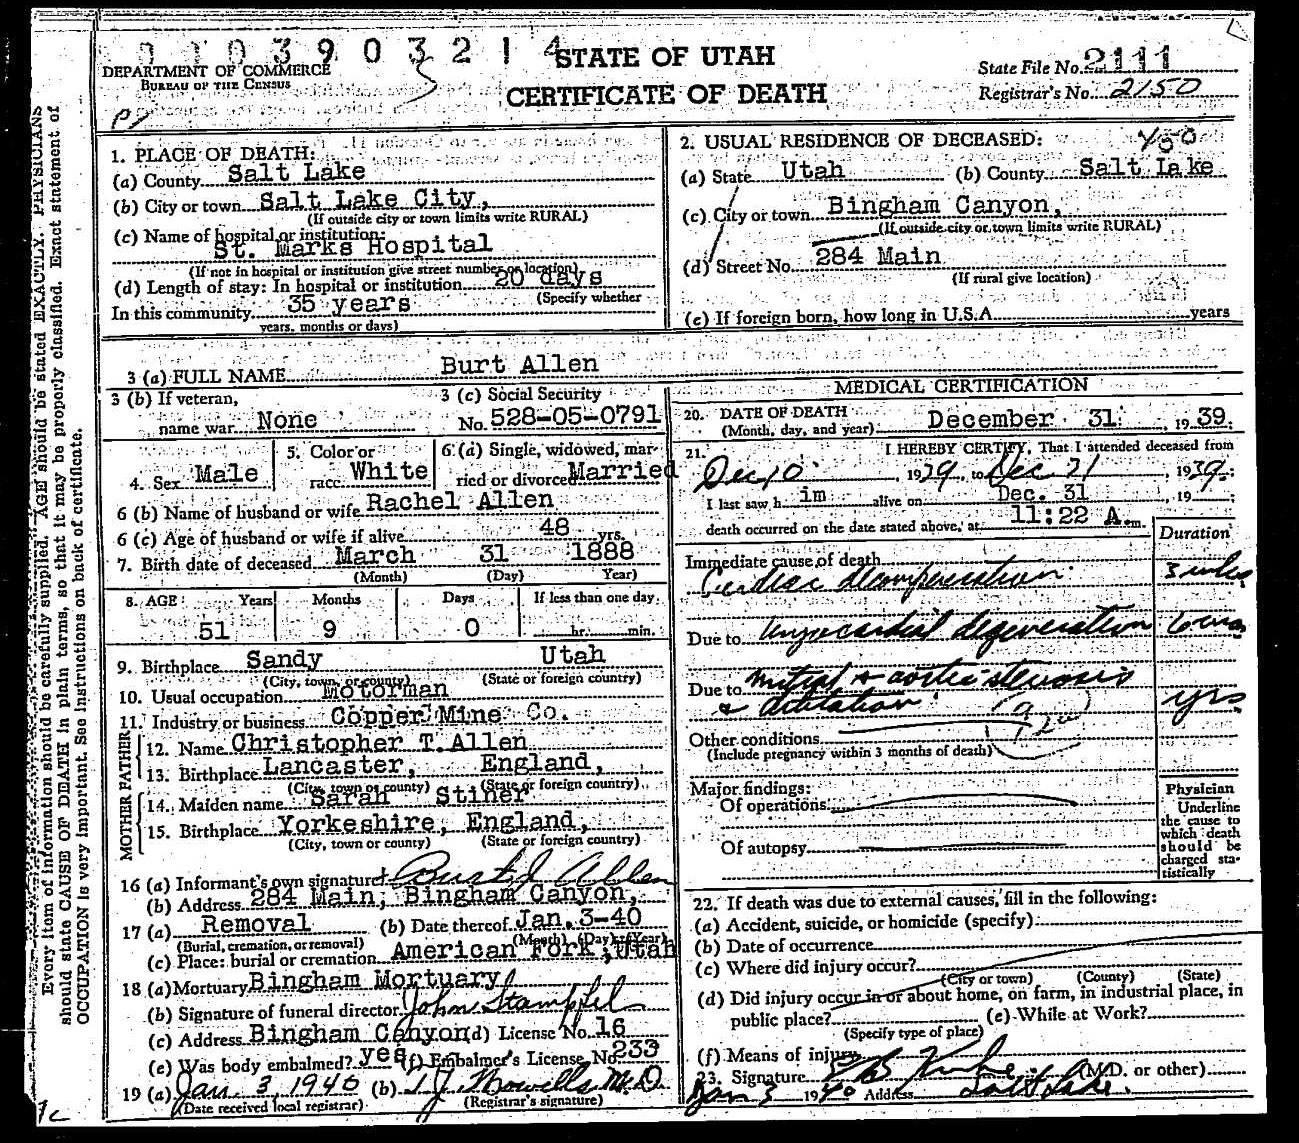 0 1 0 3 9 0 3 2 1 4
STATE OF UTAH
CERTIFICATE OF DEATH
DEPARTMENT OF COMMERCE
BUREAU OF THE CENSUS
State File No. 2111
Registrar's No. 2150
1. PLACE OF DEATH:
(a) County Salt Lake
(b) City or town Salt Lake City,
(If outside city or town limits write RURAL)
(c) Name of hospital or institution:
St. Marks Hospital
(If not in hospital or institution give street number or location)
(d) Length of stay: In hospital or institution 20 days
(Specify whether
In this community 35 years
years, months or days)
2. USUAL RESIDENCE OF DECEASED: 450
(a) State Utah (b) County Salt Lake
(c) City or town Bingham Canyon,
(If outside city or town limits write RURAL)
(d) Street No. 284 Main
(If rural give location)
(e) If foreign born, how long in U.S.A. years
3 (a) FULL NAME Burt Allen
3 (b) If veteran,
name war None
3 (c) Social Security
No. 528-05-0791
4. Sex Male
5. Color or
race White
6 (a) Single, widowed, mar-
ried or divorced Married
6 (b) Name of husband or wife Rachel Allen
6 (c) Age of husband or wife if alive 48 yrs.
7. Birth date of deceased March 31 1888
(Month) (Day) Year)
8. AGE: Years Months Days If less than one day
51 9 0 hr. min.
9. Birthplace Sandy Utah
(City, town, or county) (State or foreign country)
10. Usual occupation Motorman
11. Industry or business Copper Mine Co.
FATHER
12. Name Christopher T. Allen
13. Birthplace Lancaster, England,
(City, town or county) (State or foreign country)
MOTHER
14. Maiden name Sarah Stiner
15. Birthplace Yorkeshire, England,
(City, town or county) (State or foreign country)
16 (a) Informant's own signature Burt J Allen
(b) Address 284 Main, Bingham Canyon,
17 (a) Removal (b) Date thereof Jan. 3-40
(Burial, cremation, or removal) (Month) (Day) (Year)
(c) Place: burial or cremation American Fork, Utah
18 (a) Mortuary Bingham Mortuary
(b) Signature of funeral director John Stampfel
(c) Address Bingham Canyon (d) License No. 16
(e) Was body embalmed? yes (f) Embalmer's License No. 233
19 (a) Jan. 3, 1940 (b) T. J. Howells M.D.
(Date received local registrar) (Registrar's signature)
MEDICAL CERTIFICATION
20. DATE OF DEATH
(Month, day, and year) December 31, 1939.
21. I HEREBY CERTIFY, That I attended deceased from
Dec 10 1939, to Dec 31, 1939.
I last saw h im alive on Dec. 31, 19
death occurred on the date stated above, at 11:22 A. m.
Duration
Immediate cause of death
Cardiac decompensation 3 wks
Due to Myocardial degeneration 6 mos
Due to Mitral & aortic stenosis
& dilitation yrs.
Other conditions
(Include pregnancy within 3 months of death)
Major findings:
Of operations
Of autopsy
Physician
Underline
the cause to
which death
should be
charged sta-
tistically
22. If death was due to external causes, fill in the following:
(a) Accident, suicide, or homicide (specify)
(b) Date of occurrence
(c) Where did injury occur?
(City or town) (County) (State)
(d) Did injury occur in or about home, on farm, in industrial place, in
public place? (e) While at Work?
(Specify type of place)
(f) Means of injury
23. Signature (M.D. or other)
Jan 3 1940 Address Salt Lake.
Every item of information should be carefully supplied. AGE should be stated EXACTLY. PHYSICIANS
should state CAUSE OF DEATH in plain terms, so that it may be properly classified. Exact statement of
OCCUPATION is very important. See instructions on back of certificate.